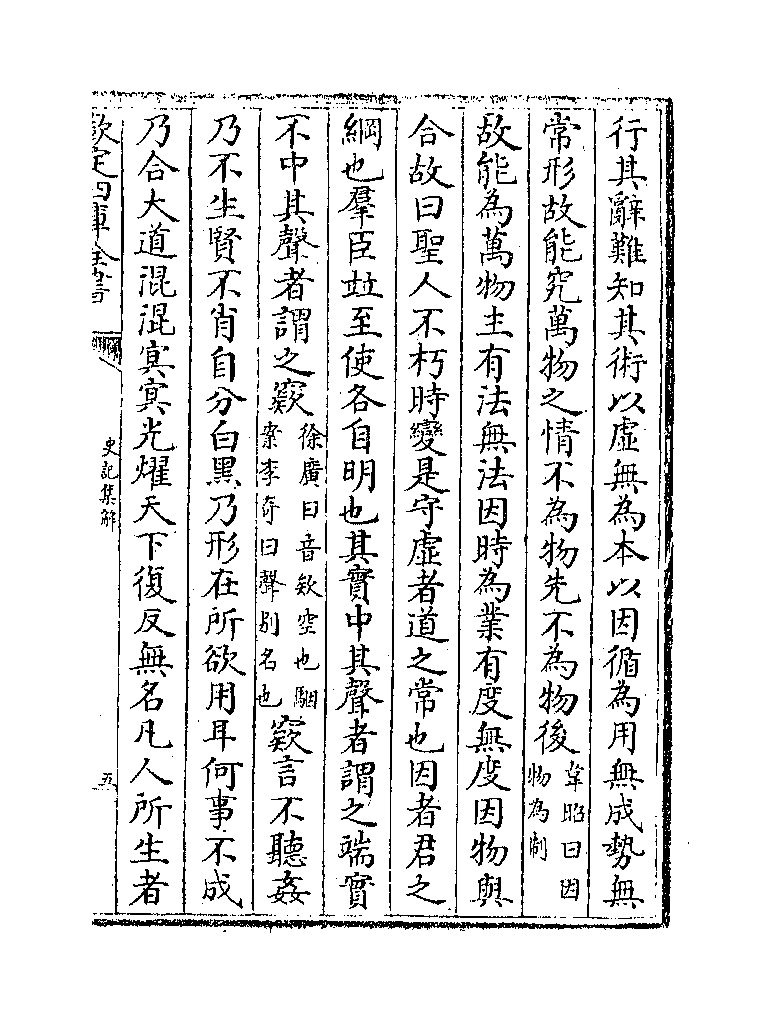 行其辭難知其術以虛無為本以因循為用無成勢無
常形故能究萬物之情不為物先不為物後韋昭曰因物為制
故能為萬物主有法無法因時為業有度無度因物與
合故曰聖人不朽時變是守虛者道之常也因者君之
綱也羣臣竝至使各自明也其實中其聲者謂之端實
不中其聲者謂之窾徐廣曰音欵空也駰案李奇曰聲别名也窾言不聽姦
乃不生賢不肖自分白黑乃形在所欲用耳何事不成
乃合大道混混冥冥光燿天下復反無名凡人所生者
欽定四庫全書
史記集解
五